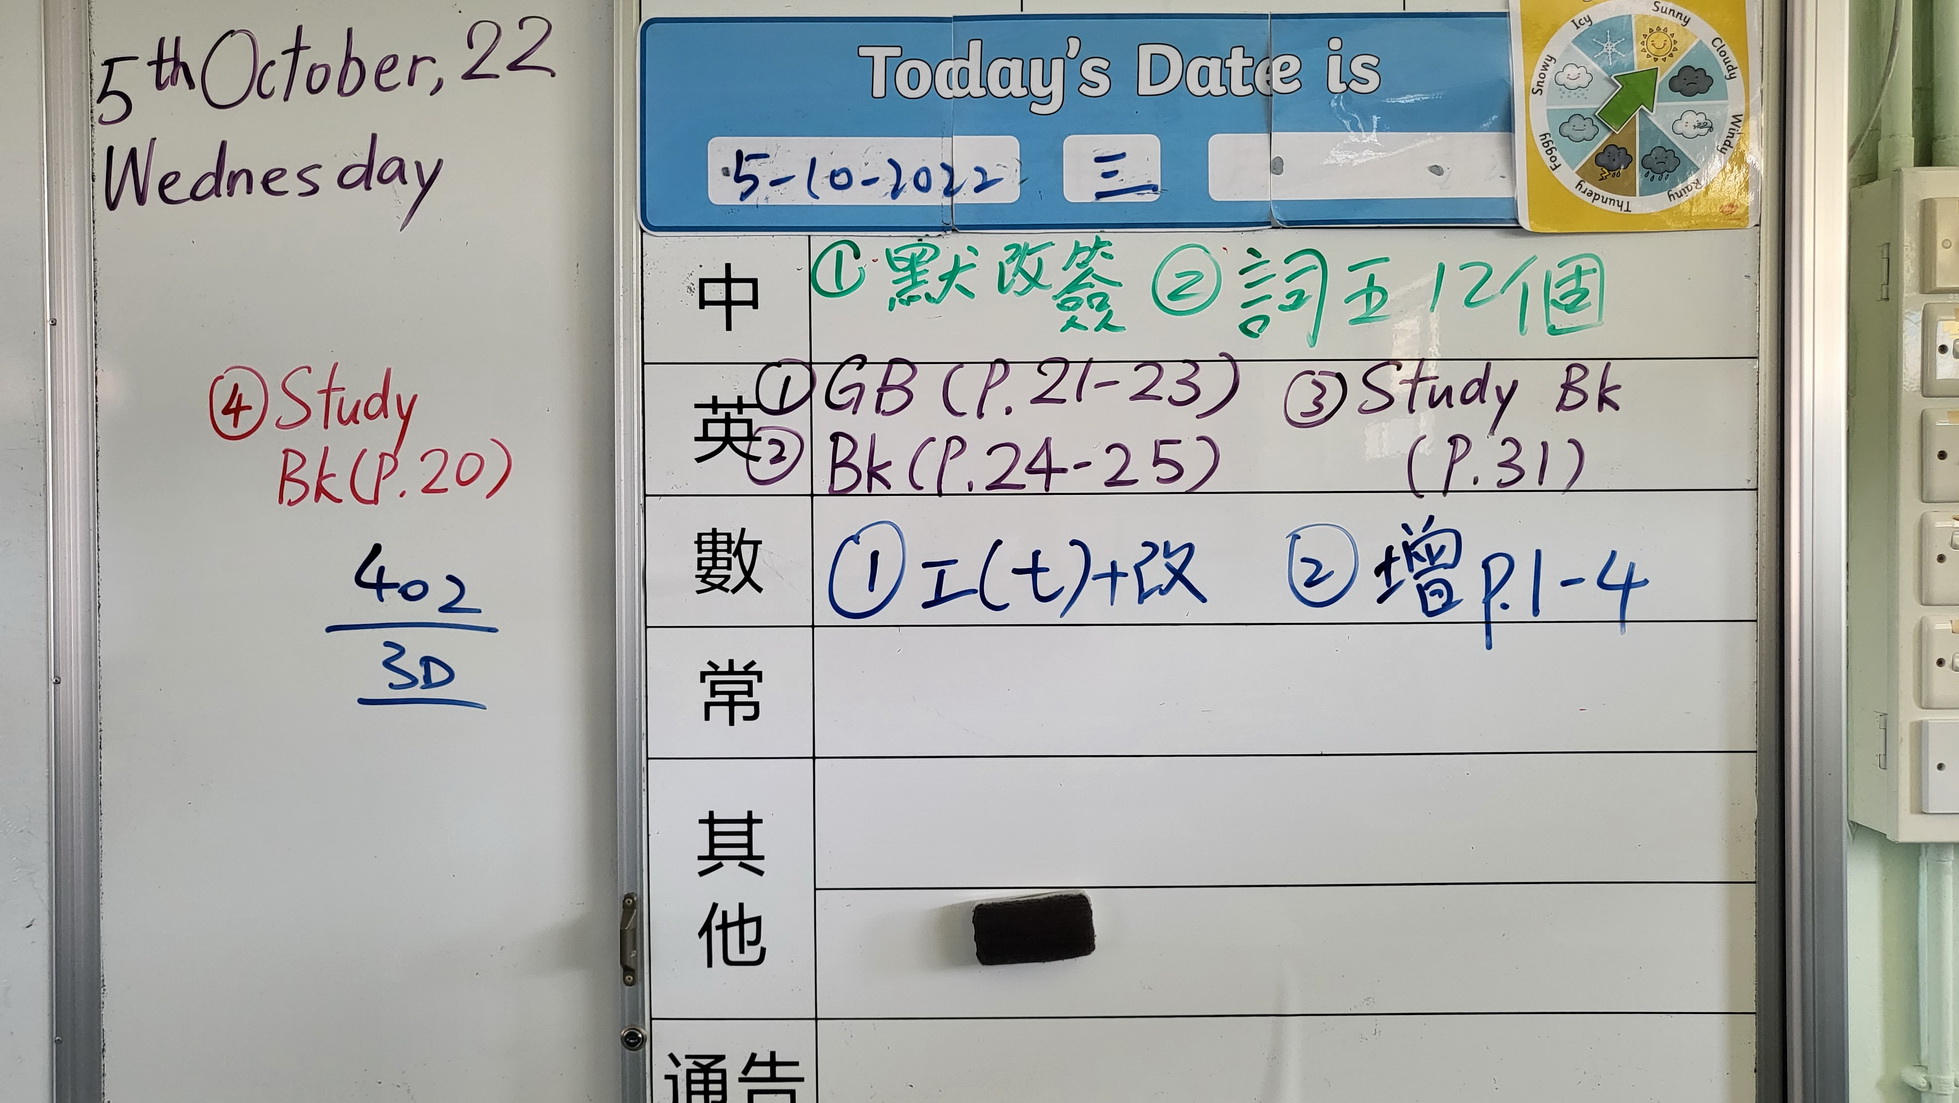 5th October, 22
Wednesday
④ Study
Bk (P.20)
402
3D
Today's Date is
5-10-2022 三
Icy
Sunny
Cloudy
Windy
Rainy
Thundery
Foggy
Snowy
中 ① 默改簽 ② 詞五12個
英 ① GB (P.21-23) ③ Study Bk
② Bk (P.24-25) (P.31)
數 ① 工(七)+改 ② 增 P.1-4
常
其他
通告